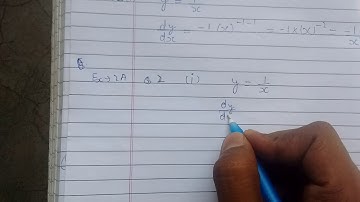 y = 1/x
dy/dx = -1(x)^{-1-1} = -1×(x)^{-2} = -1/x
Q
Ex→2A Q.2 (i) y = 1/x
dy/dx